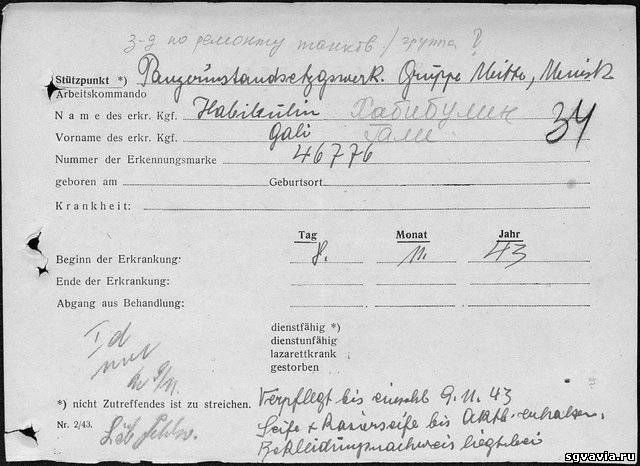 з-д по ремонту танков / группа ?
Stützpunkt *) Panzerinstandsetzgswerk. Gruppe Mitte, Minsk
Arbeitskommando
Name des erkr. Kgf. Habibulin Хабибулин
Vorname des erkr. Kgf. Gali Гали 34
Nummer der Erkennungsmarke 46776
geboren am Geburtsort
Krankheit:
Tag Monat Jahr
Beginn der Erkrankung: 8. 11. 43
Ende der Erkrankung:
Abgang aus Behandlung:
dienstfähig *)
dienstunfähig
lazarettkrank
gestorben
*) nicht Zutreffendes ist zu streichen.
Nr. 2/43.
Verpflegt bis einschl 9.11.43
Seife + Rasierseife bis Oktb. erhalten.
Bekleidungsnachweis liegt bei
sgvavia.ru